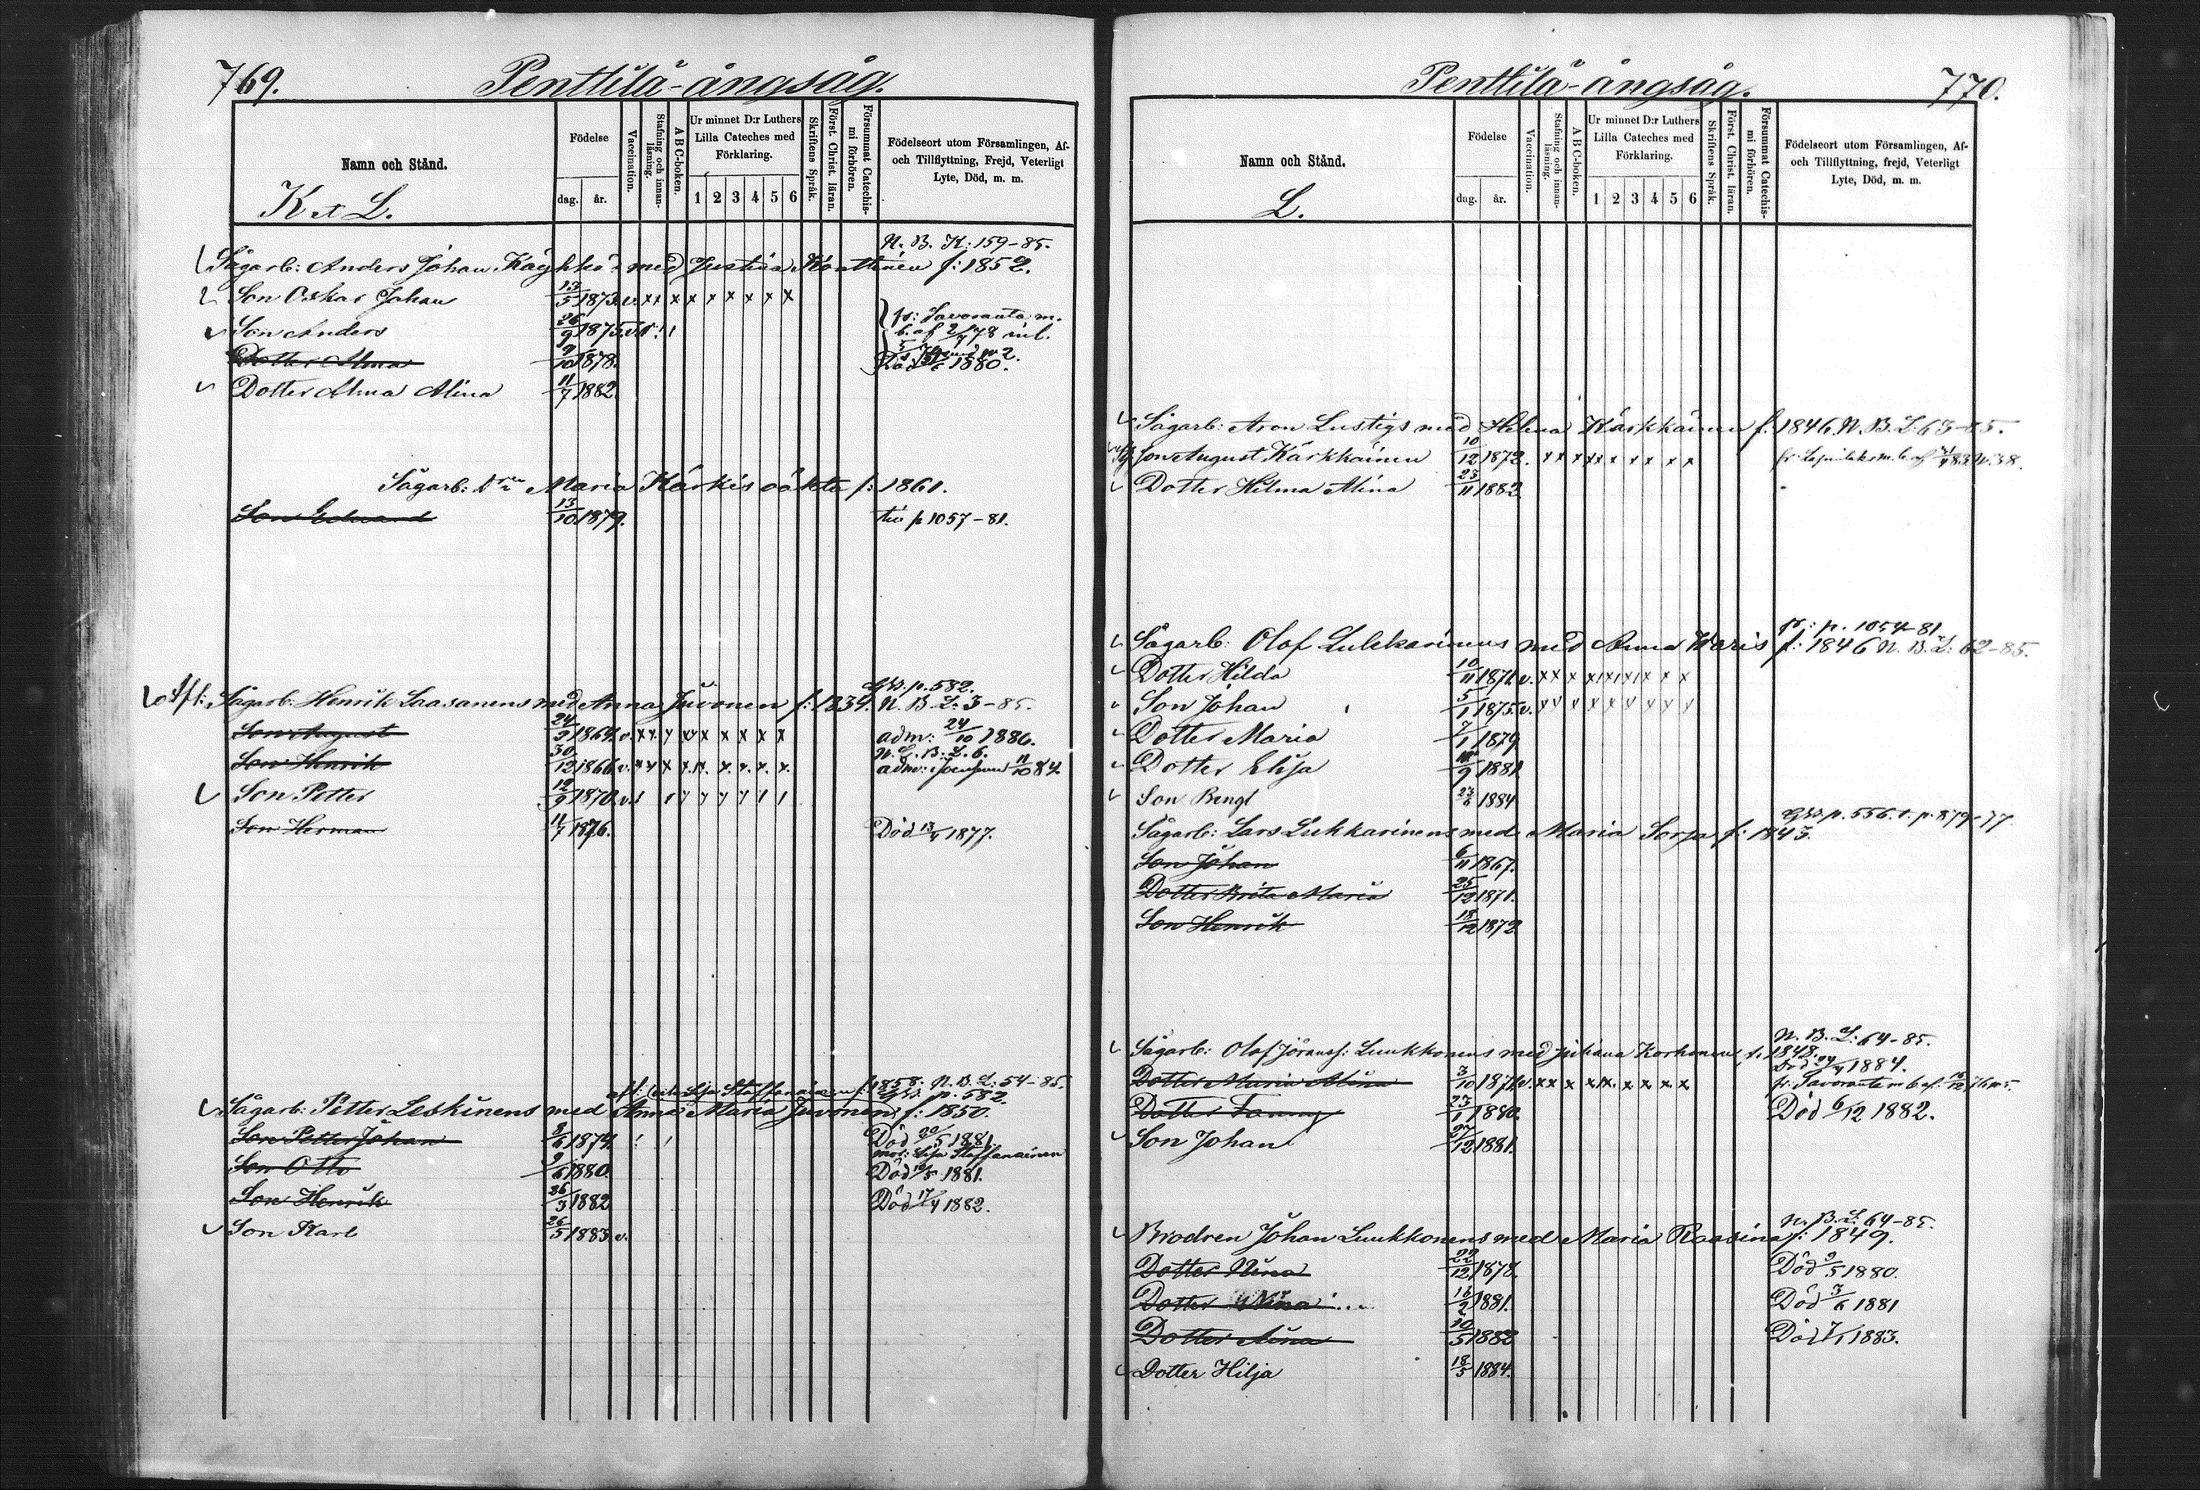 769.
Penttilä-ångsåg.
Namn och Stånd.
K et L.
Födelse
dag. år.
Vaccination.
Stafning och innanläsning.
A B C-boken.
Ur minnet D:r Luthers Lilla Cateches med Förklaring.
1 2 3 4 5 6
Skriftens Språk.
Först. Christ. läran.
Försummat Catechismi förhören.
Födelseort utom Församlingen, Af- och Tillflyttning, Frejd, Veterligt Lyte, Död, m. m.
N. B. K: 159-85.
Sågarb: Anders Johan Käyhkö med Justina f: 1852.
Son Oskar Johan 13/5 1873. v. x x x x x x x x x
Son Anders 26/9 1875. v.
fr: Savoranta m. b. af
Dotter Alma 9/10 1878. Död 1880.
Dotter Alma Alina 11/7 1882.
Sågarb: Maria Kärkis oäkta f: 1861.
Son Edvard 13/10 1879. p 1057-81.
p. 582.
Sågarb: Henrik Laasanens med Anna Juvonen f: N. B. L: 3-85.
Son August 24/9 1864. v. x x x x x x x x adm: 24/10 1880.
Son Henrik 30/12 1866. v. x x x x x x x x N. B. L. 6. adm: 11/10 84
Son Petter 12/9 1870. v.
Son Herman 11/7 1876. Död 1877.
Lisa Stoffanainen f: 1858. N. B. L: 54-85.
p. 582.
Sågarb: Petter Leskinens med Anna Maria Juvonen f: 1850.
Son Petter Johan 8/6 1874. Död 20/5 1881.
mor: Lisa Stoffanainen
Son Otto 9/6 1880. Död 1881.
Son Henrik 26/3 1882 Död 17/4 1882.
Son Karl 26/5 1883. v.
Penttilä-ångsåg.
770.
Namn och Stånd.
L.
Födelse
dag. år.
Vaccination.
Stafning och innanläsning.
A B C-boken.
Ur minnet D:r Luthers Lilla Cateches med Förklaring.
1 2 3 4 5 6
Skriftens Språk.
Först. Christ. läran.
Försummat Catechismi förhören.
Födelseort utom Församlingen, Af- och Tillflyttning, frejd, Veterligt Lyte, Död, m. m.
Sågarb: Aron Lustigs med Helena Kärkkäinen f. 1846. N. B. L: 63-85.
Son August Kärkkäinen 10/12 1872. x x x x x x x x x
Dotter Hilma Alina 23/11 1882
fr: p. 1054-81
Sågarb: Olof Lukkarinens med Anna Waris f: 1846 N. B. L: 62-85.
Dotter Hilda 10/11 1871. v. x x x x x x x x x
Son Johan 5/1 1875. v.
Dotter Maria 7/1 1879
Dotter Elisa 1881.
Son Bengt 1884
p. 556. v. p. 879-77
Sågarb: Lars Lukkarinens med Maria Sorsa f: 1843.
Son Johan 6/11 1867.
Dotter Brita Maria 25/12 1871.
Son Henrik 18/12 1872
N. B. L: 64-85.
Sågarb: Olof Jöranss: Luukkonens med Juliana Korhonen f. 1848.
Död 1884.
Dotter Maria Alina 3/10 1871. v. x x x x x x x x x
Dotter Fanny 23/1 1880. Död 6/12 1882.
Son Johan 27/12 1881.
N. B. L: 64-85.
Brodren Johan Luukkonens med Maria f: 1849.
Dotter Nina 22/12 1878. Död 2/5 1880.
Dotter 16/2 1881. Död 3/6 1881
Dotter 10/5 1882 Död 7/1 1883.
Dotter Hilja 18/5 1884.